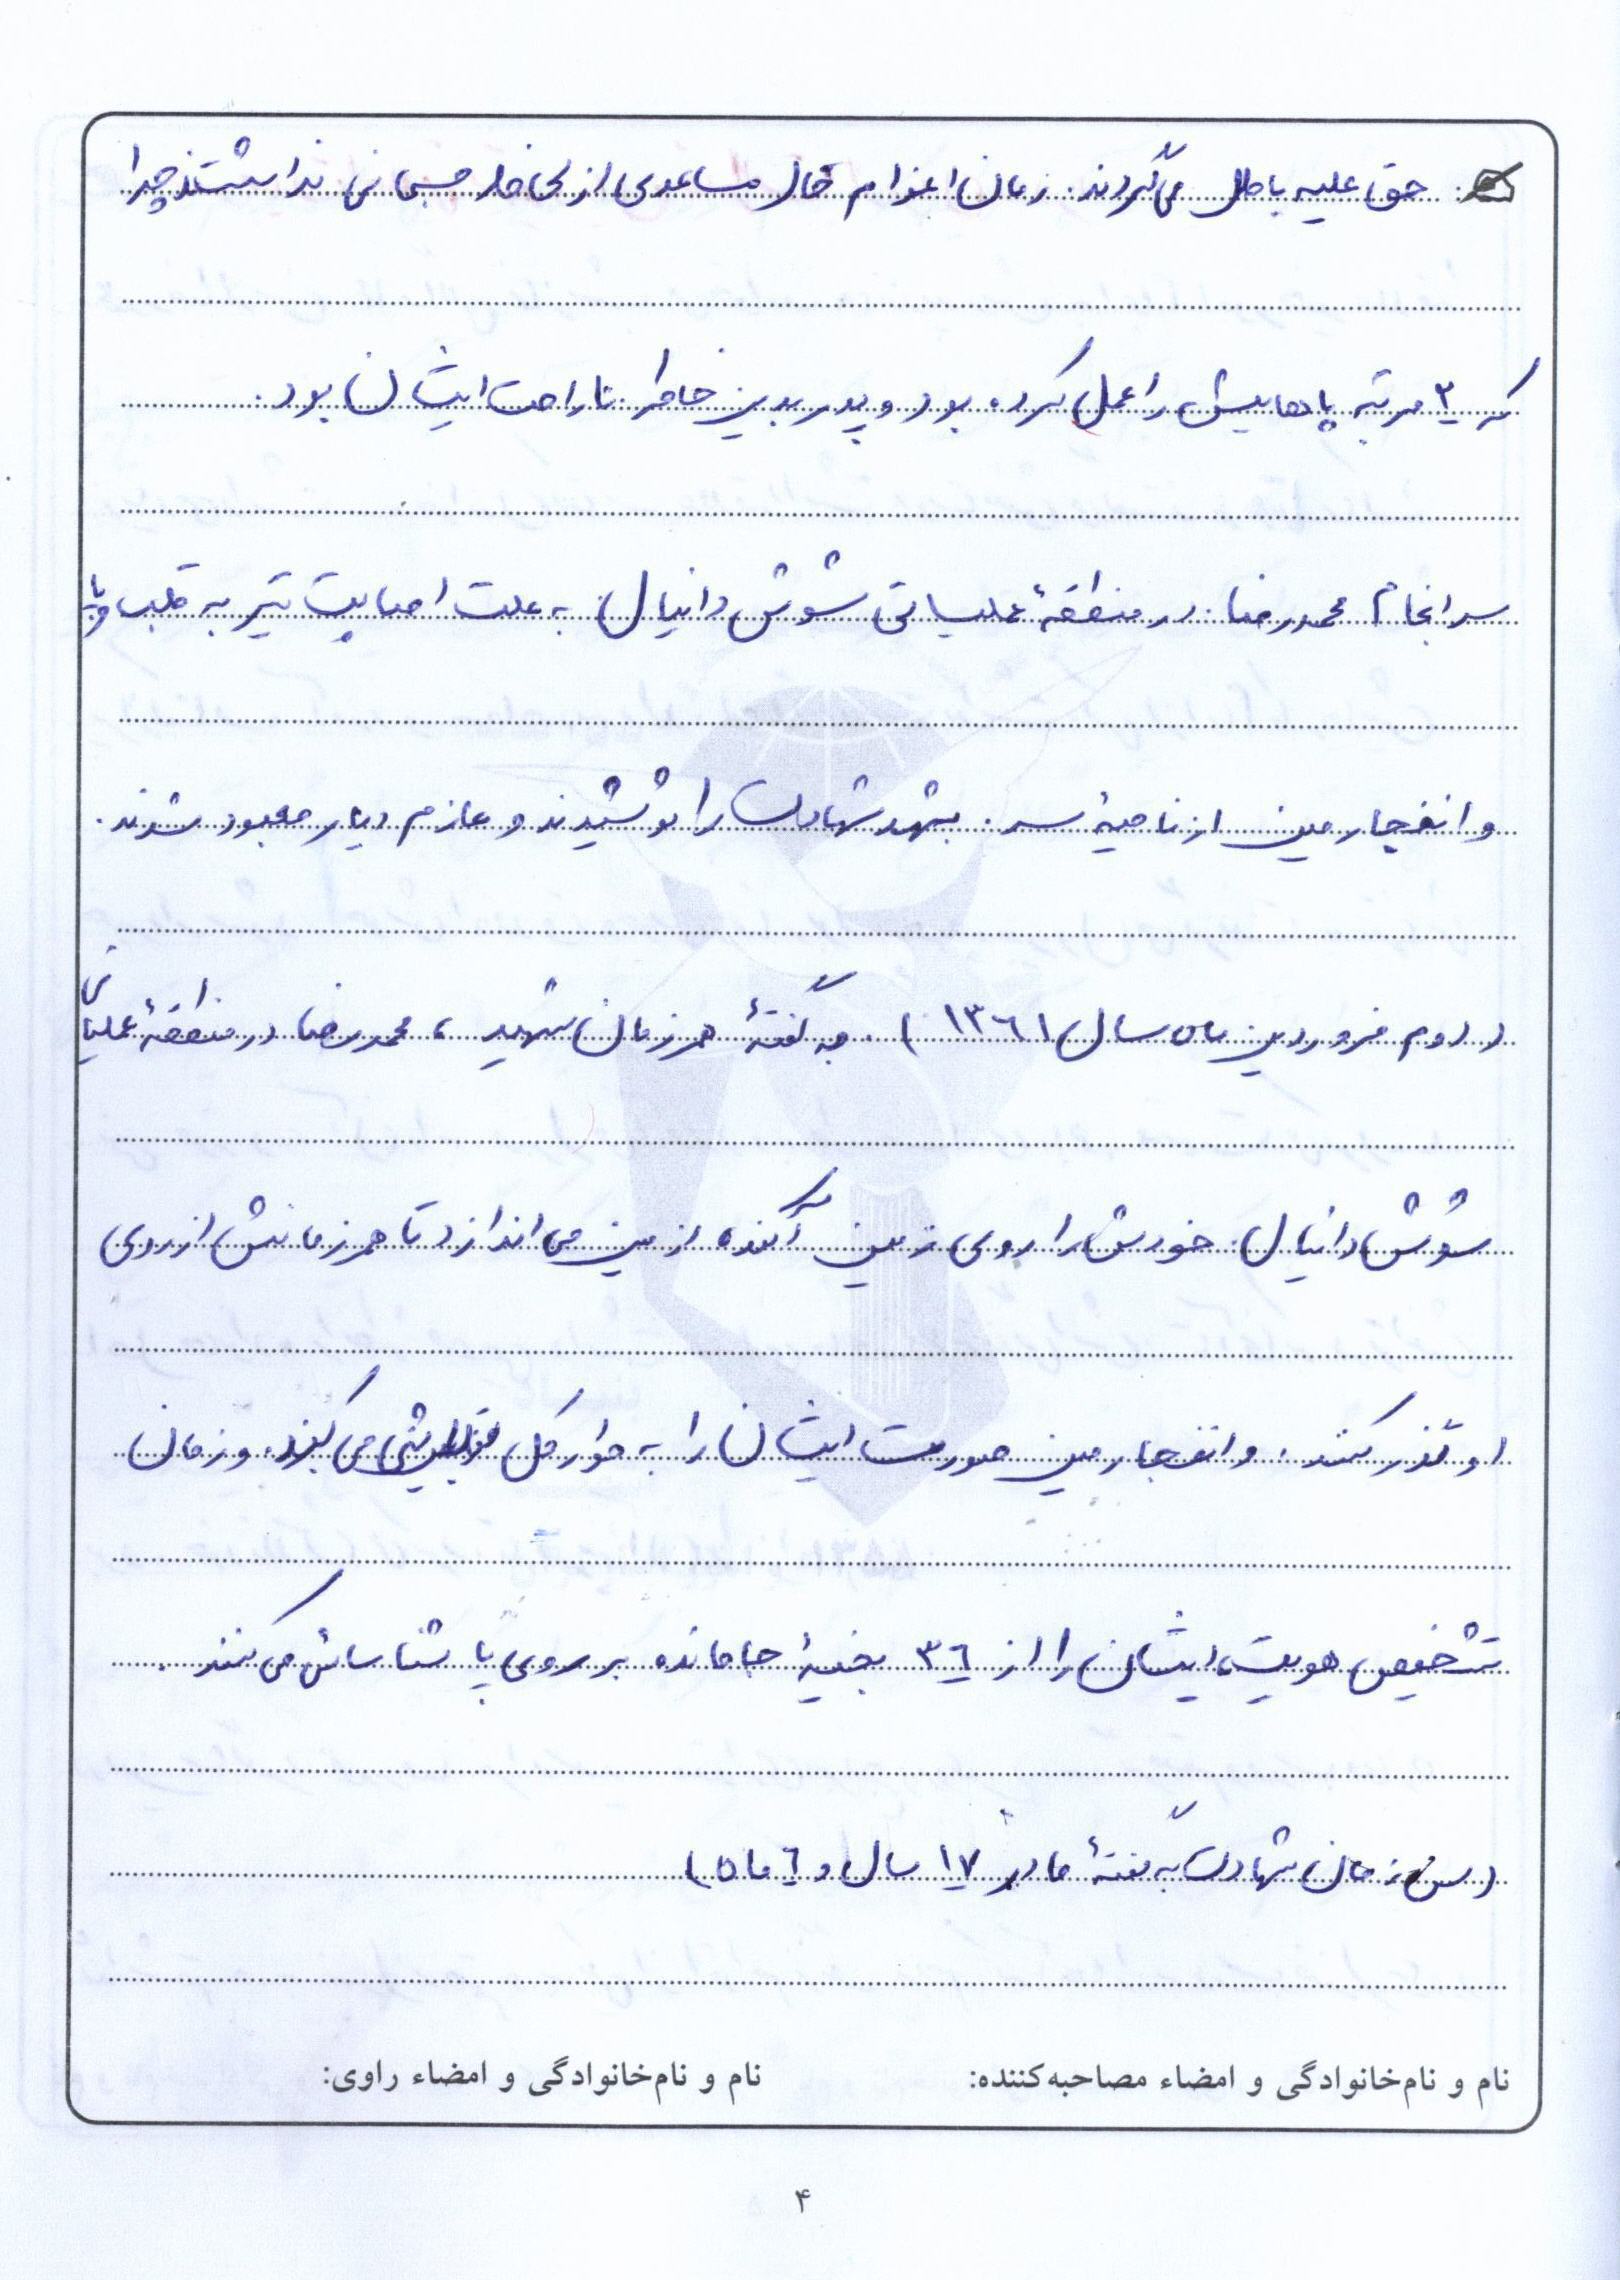 حق علیه باطل می‌گردند. زمان اعزام حال مساعدی از لحاظ جسمانی نداشتند چرا
که ۳ مرتبه پاهایش را عمل کرده بود و پدر بدین خاطر ناراحت ایشان بود.
سرانجام محمدرضا در منطقهٔ عملیاتی شوش دانیال به علت اصابت تیر به قلب و پا
و انفجار مین از ناحیهٔ سر. شهد شهادت را نوشیدند و عازم دیار معبود شدند.
(دوم فروردین ماه سال ۱۳۶۱). به گفتهٔ همرزمان شهید، محمدرضا در منطقهٔ عملیاتی
شوش دانیال. خودش را روی زمین آکنده از مین می‌اندازد تا همرزمانش از روی
او گذر کنند. و انفجار مین صورت ایشان را به طور کل متلاشی می‌کند. و زمان
تشخیص هویت، ایشان را از ۳۶ بخیهٔ جامانده بر روی پا شناسائی می‌کنند.
(سن زمان شهادت به گفتهٔ مادر ۱۷ سال و ۶ ماه)
نام و نام‌خانوادگی و امضاء مصاحبه‌کننده: نام و نام‌خانوادگی و امضاء راوی:
۴